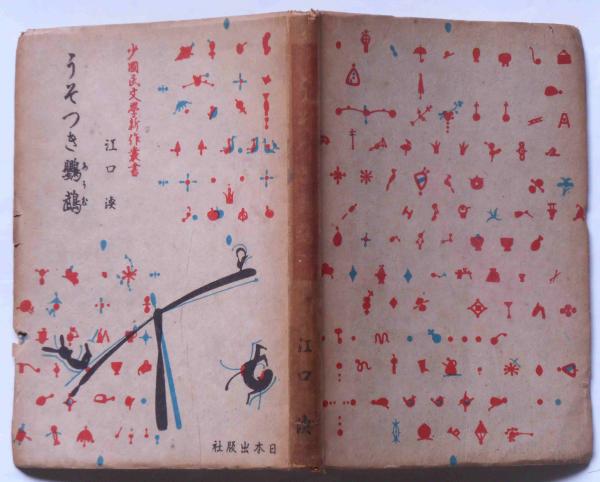 少國民文學新作叢書
江口渙
うそつき鸚鵡
あうむ
日本出版社
江口渙